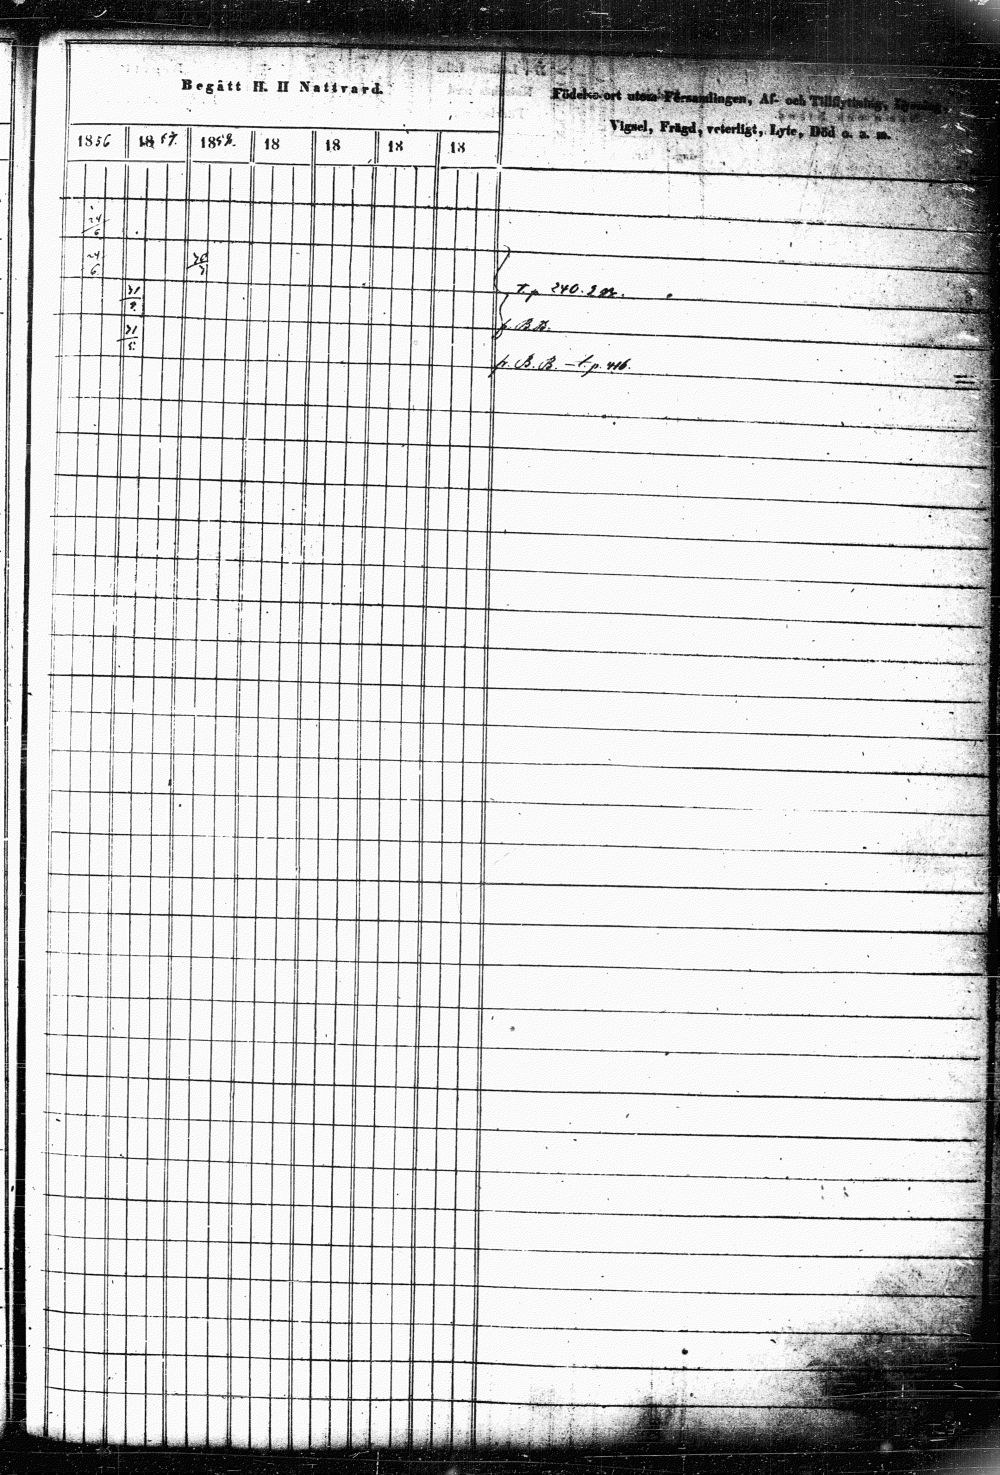 Begått H. H Nattvard.
Födelse-ort utom Församlingen, Af- och Tillflyttning, Lysning,
Vigsel, Frägd, veterligt, Lyte, Död o. s. m.
1856 1857. 1858. 18 18 18 18
24/6
24/6
t. p. 240. 2
21/5
p. B. B.
21/5
p. B. B. – t. p. 416.